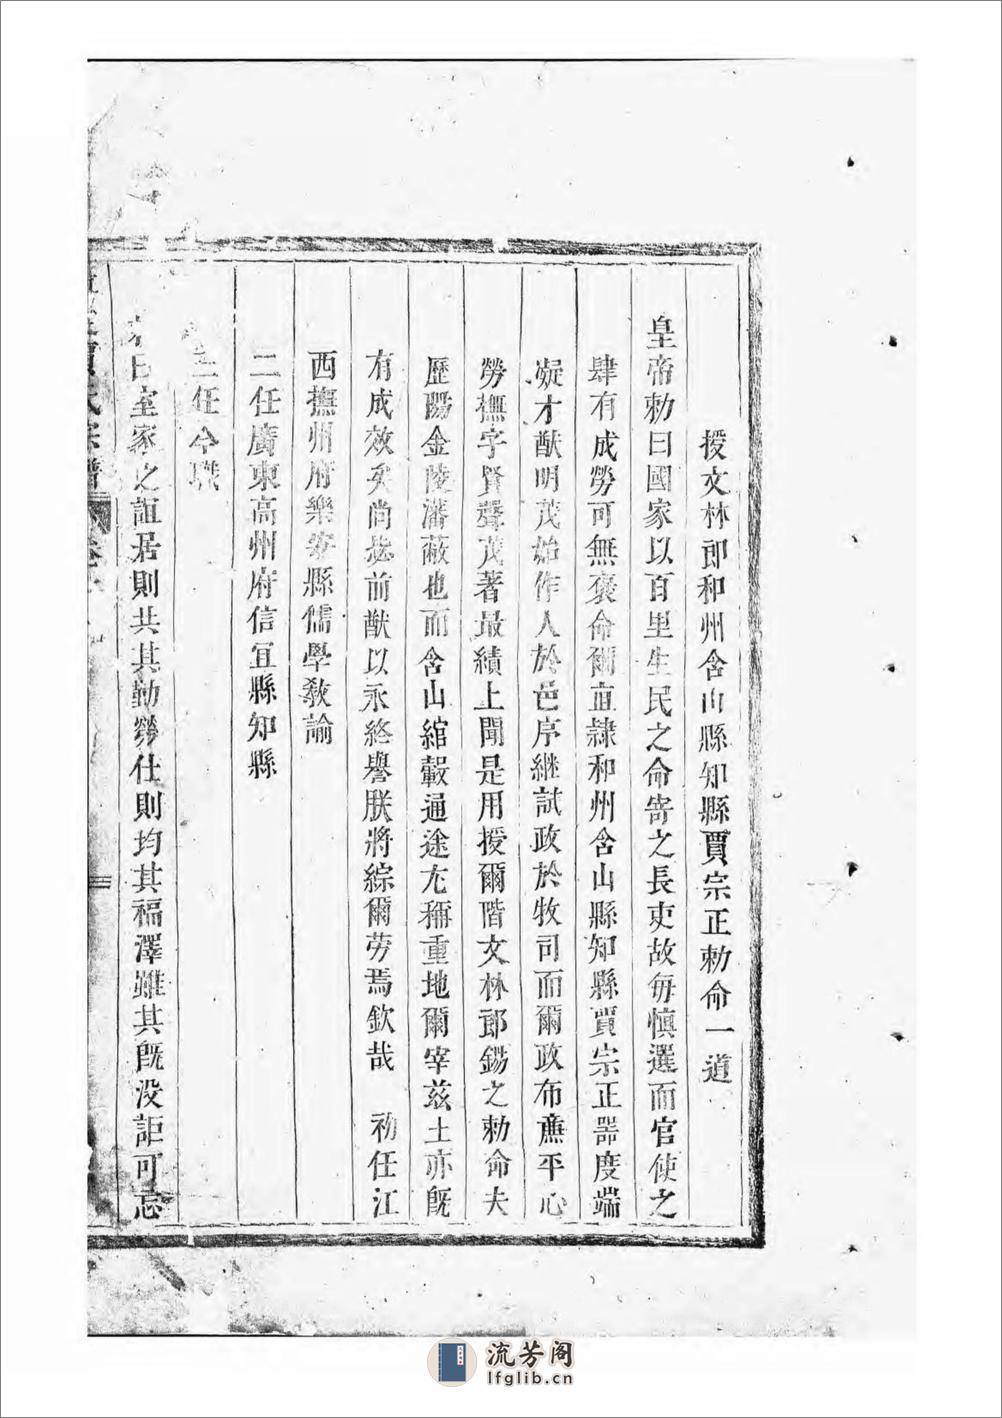 授文林郎和州含山縣知縣賈宗正勅命一道
皇帝勅曰國家以百里生民之命寄之長吏故每慎選而官使之
肆有成勞可無褒命爾直隸和州含山縣知縣賈宗正器度端
凝才猷明茂始作人於邑序繼試政於牧司而爾政布廉平心
勞撫字賢聲茂著最績上聞是用授爾階文林郎錫之勅命夫
歷陽金陵藩蔽也而含山綰轂通途尤稱重地爾宰茲土亦旣
有成效矣尚毖前猷以永終譽朕將綜爾劳焉欽哉 初任江
西撫州府樂安縣儒學教諭
二任廣東高州府信宜縣知縣
三任今職
曰室家之誼居則共其勤勞仕則均其福澤雖其旣没詎可忘
氏宗譜 卷
流芳阁
lfglib.cn